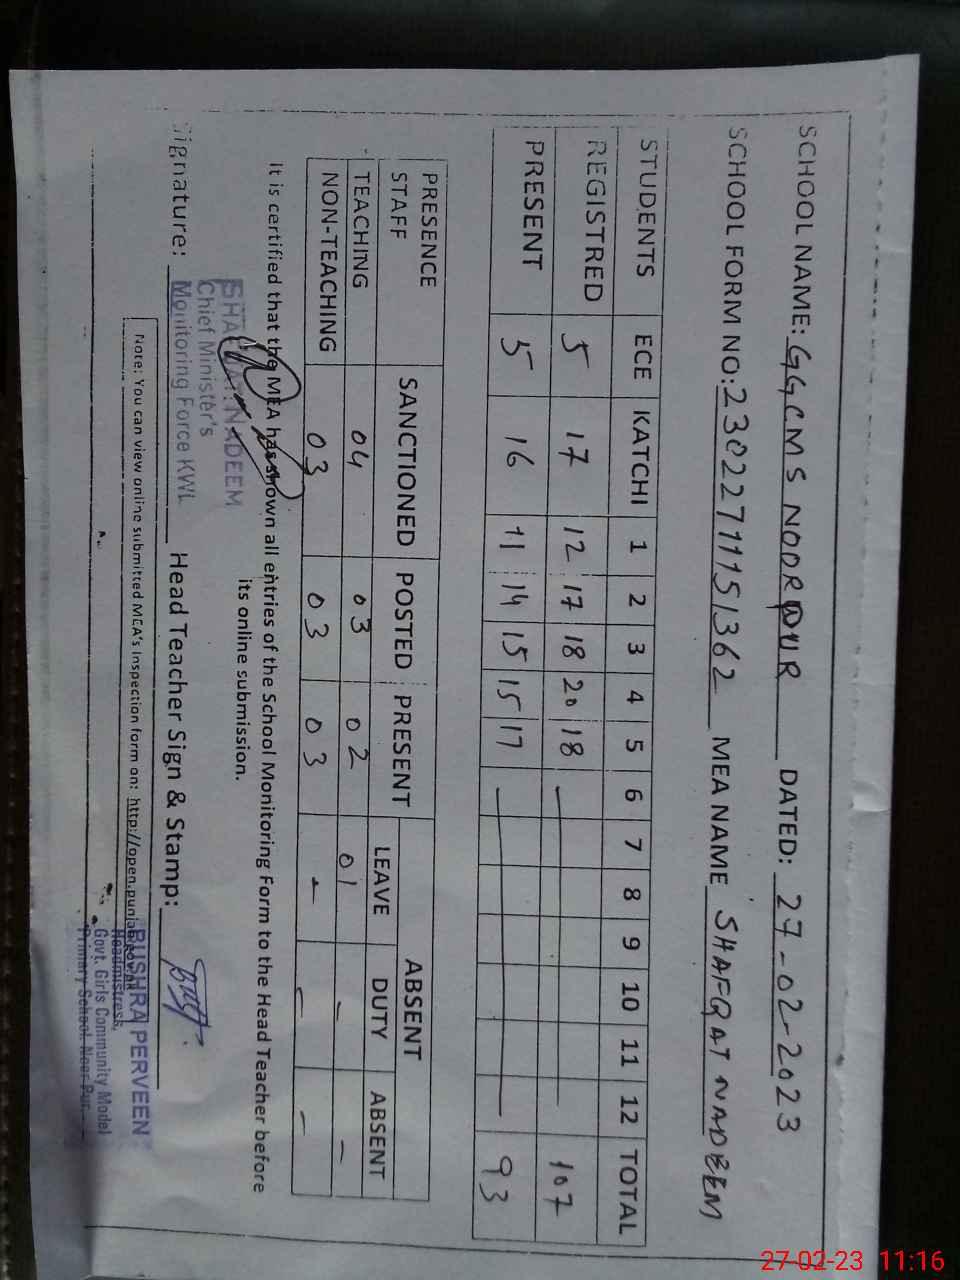 SCHOOL NAME: GGCMS NOORPUR DATED: 27-02-2023
SCHOOL FORM NO: 23022711151362 MEA NAME SHAFQAT NADEEM
STUDENTS ECE KATCHI 1 2 3 4 5 6 7 8 9 10 11 12 TOTAL
REGISTRED 5 17 12 17 18 20 18 107
PRESENT 5 16 11 14 15 15 17 93
PRESENCE STAFF SANCTIONED POSTED PRESENT ABSENT
LEAVE DUTY ABSENT
TEACHING 04 03 02 01 - -
NON-TEACHING 03 03 03 - - -
It is certified that the MEA has shown all entries of the School Monitoring Form to the Head Teacher before
its online submission.
SHAFQAT NADEEM
Chief Minister's
Monitoring Force KWL
Signature: Head Teacher Sign & Stamp:
Note: You can view online submitted MEA's Inspection form on: http://open.punjab.gov.pk
BUSHRA PERVEEN
Headmistress,
Govt. Girls Community Model
Primary School Noor Pur
27-02-23 11:16